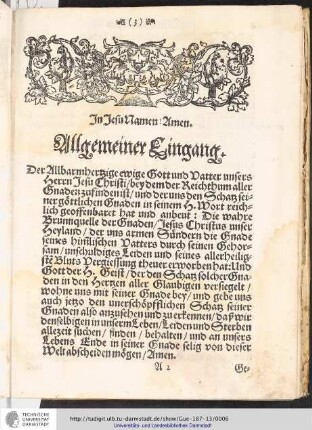 (3)
In Jesu Namen / Amen.
Allgemeiner Eingang.
Der Allbarmhertzige ewige Gott und Vatter unsers
Herrn Jesu Christi / bey dem der Reichthum aller
Gnaden zu finden ist / und der uns den Schatz sei-
ner göttlichen Gnaden in seinem H. Wort reich-
lich geoffenbaret hat und anbeut: Die wahre
Brunnquelle der Gnaden / Jesus Christus unser
Heyland / der uns armen Sündern die Gnade
seines himlischen Vatters durch seinen Gehor-
sam / unschuldiges Leiden und seines allerheilig-
ste Bluts Vergiessung theuer erworben hat: Und
Gott der H. Geist / der den Schatz solcher Gna-
den in den Hertzen aller Glaubigen versiegelt /
wohne uns mit seiner Gnade bey / und gebe uns
auch jetzo den unerschöpfflichen Schatz seiner
Gnaden also anzusehen und zu erkennen / daß wir
denselbigen in unserm Leben / Leiden und Sterben
allezeit suchen / finden / behalten / und an unsers
Lebens Ende in seiner Gnade selig von dieser
Welt abscheiden mögen / Amen.
A 2 Ge-
TECHNISCHE
UNIVERSITÄT
DARMSTADT
http://tudigit.ulb.tu-darmstadt.de/show/Gue-187-13/0006
Universitäts- und Landesbibliothek Darmstadt